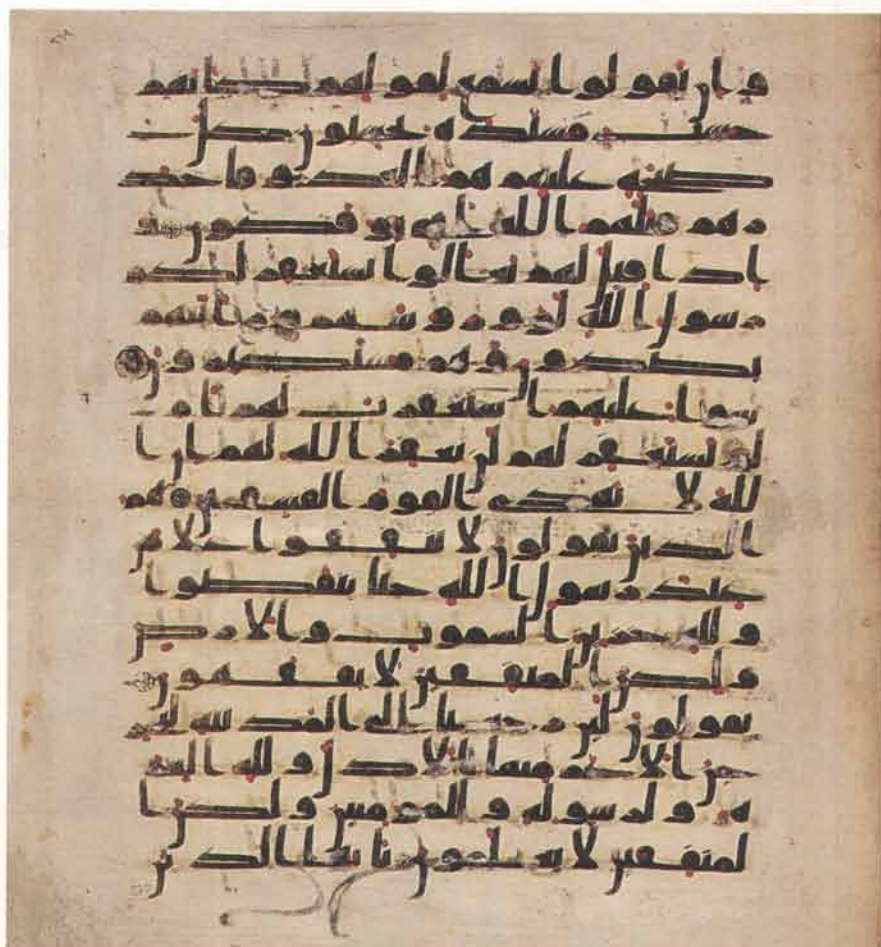 وان يقولوا تسمع لقولهم كانهم
خشب مسندة يحسبون كل
صيحة عليهم هم العدو فاحذ
رهم قتلهم الله انى يوفكون و
اذا قيل لهم تعالوا يستغفر لكم
رسول الله لووا روسهم ورايتهم
يصدون وهم مستكبرون
سوا عليهم استغفرت لهم ام
لم تستغفر لهم لن يغفر الله لهم ان ا
لله لا يهدى القوم الفسقين هم
الذين يقولون لا تنفقوا على من
عند رسول الله حتى ينفضوا
ولله خزين السموت والارض
ولكن المنفقين لا يفقهون
يقولون لين رجعنا الى المدينة ليخر
جن الاعز منها الاذل ولله العز
ة ولرسوله وللمومنين ولكن ا
لمنفقين لا يعلمون يايها الذين